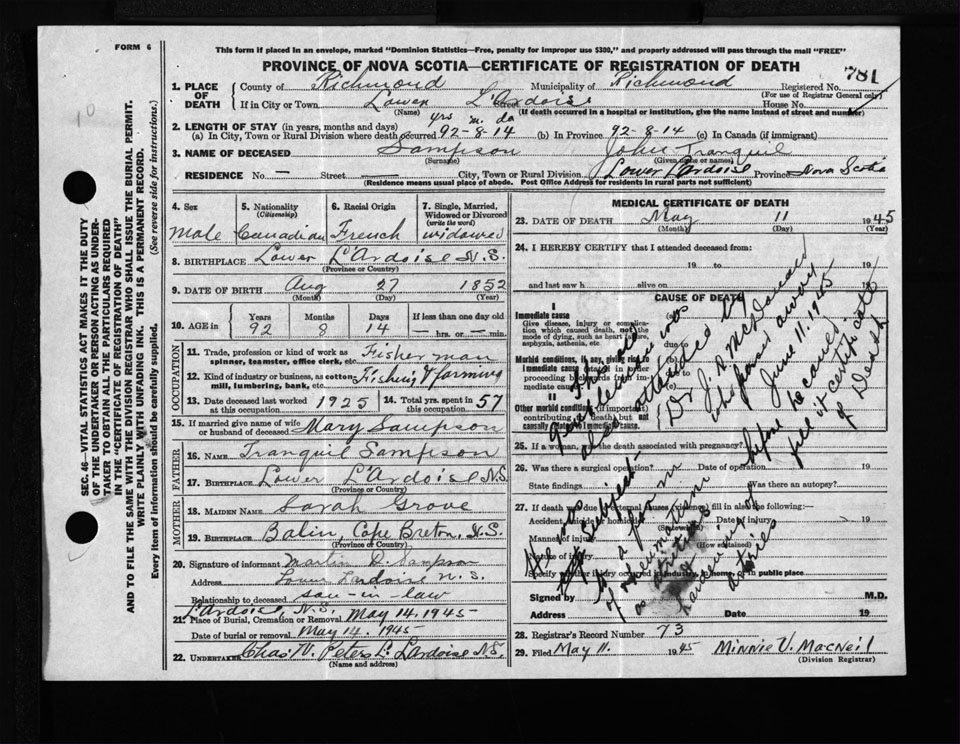 FORM 6
This form if placed in an envelope, marked "Dominion Statistics—Free, penalty for improper use $300," and properly addressed will pass through the mail "FREE"
PROVINCE OF NOVA SCOTIA—CERTIFICATE OF REGISTRATION OF DEATH
781
10
SEC. 46—VITAL STATISTICS ACT MAKES IT THE DUTY
OF THE UNDERTAKER OR PERSON ACTING AS UNDER-
TAKER TO OBTAIN ALL THE PARTICULARS REQUIRED
IN THE "CERTIFICATE OF REGISTRATION OF DEATH"
AND TO FILE THE SAME WITH THE DIVISION REGISTRAR WHO SHALL ISSUE THE BURIAL PERMIT.
WRITE PLAINLY WITH UNFADING INK. THIS IS A PERMANENT RECORD.
Every item of information should be carefully supplied. (See reverse side for instructions.)
1. PLACE OF DEATH County of Richmond Municipality of Richmond Registered No.
(For use of Registrar General only)
If in City or Town Lower L'Ardoise Street House No.
(Name) (If death occurred in a hospital or institution, give the name instead of street and number)
yrs m. da
2. LENGTH OF STAY (in years, months and days)
(a) In City, Town or Rural Division where death occurred 92-8-14 (b) In Province 92-8-14 (c) In Canada (if immigrant)
3. NAME OF DECEASED Sampson John Tranquil
(Surname) (Given name or names)
RESIDENCE No. — Street — City, Town or Rural Division Lower Lardoise Province Nova Scotia
(Residence means usual place of abode. Post Office Address for residents in rural parts not sufficient)
4. Sex 5. Nationality (Citizenship) 6. Racial Origin 7. Single, Married, Widowed or Divorced (write the word)
Male Canadian French widowed
8. BIRTHPLACE Lower L'Ardoise N.S.
(Province or Country)
9. DATE OF BIRTH Aug 27 1852
(Month) (Day) (Year)
10. AGE in Years Months Days If less than one day
92 8 14 — hrs. or — min.
OCCUPATION
11. Trade, profession or kind of work as spinner, teamster, office clerk, etc. Fisherman
12. Kind of industry or business, as cotton-mill, lumbering, bank, etc. Fishing & farming
13. Date deceased last worked at this occupation 1925 14. Total yrs. spent in this occupation 57
15. If married give name of wife or husband of deceased Mary Sampson
FATHER
16. Name Tranquil Sampson
17. Birthplace Lower L'Ardoise N.S.
(Province or Country)
MOTHER
18. Maiden Name Sarah Grove
19. Birthplace Cape Breton, N.S.
(Province or Country)
20. Signature of informant Martin D. Sampson
Address Lower Lardoise N.S.
Relationship to deceased son-in law
L'Ardoise, N.S.
21. Place of Burial, Cremation or Removal May 14. 1945
Date of burial or removal May 14. 1945
22. Undertaker Chas W. Peters L. Lardoise N.S.
(Name and address)
MEDICAL CERTIFICATE OF DEATH
23. DATE OF DEATH May 11 1945
(Month) (Day) (Year)
24. I HEREBY CERTIFY that I attended deceased from:
19 to 19
and last saw h alive on 19
CAUSE OF DEATH
I
Immediate cause
Give disease, injury or complication which caused death, not the mode of dying, such as heart failure, asphyxia, asthenia, etc.
(a)
due to
Morbid conditions, if any, giving rise to Immediate cause
(b)
due to
(c)
II
Other morbid conditions (if important) contributing to death but not causally related to immediate cause.
This was attended by Dr J. A. McDonald who passed away June 11. 1945 before he could fill it certificate of Death
He was subject to a form of rheumatism
25. If a woman, was the death associated with pregnancy?
26. Was there a surgical operation? Date of operation 19
State findings Was there an autopsy?
27. If death due to external causes (violence) fill in also the following:
Accident, suicide or homicide Date of injury 19
Manner of injury
(How sustained)
Nature of injury
Specify whether injury occurred in industry, home or in public place
Signed by M.D.
Address Date 19
28. Registrar's Record Number 73
29. Filed May 11. 1945 Minnie V. MacNeil
(Division Registrar)